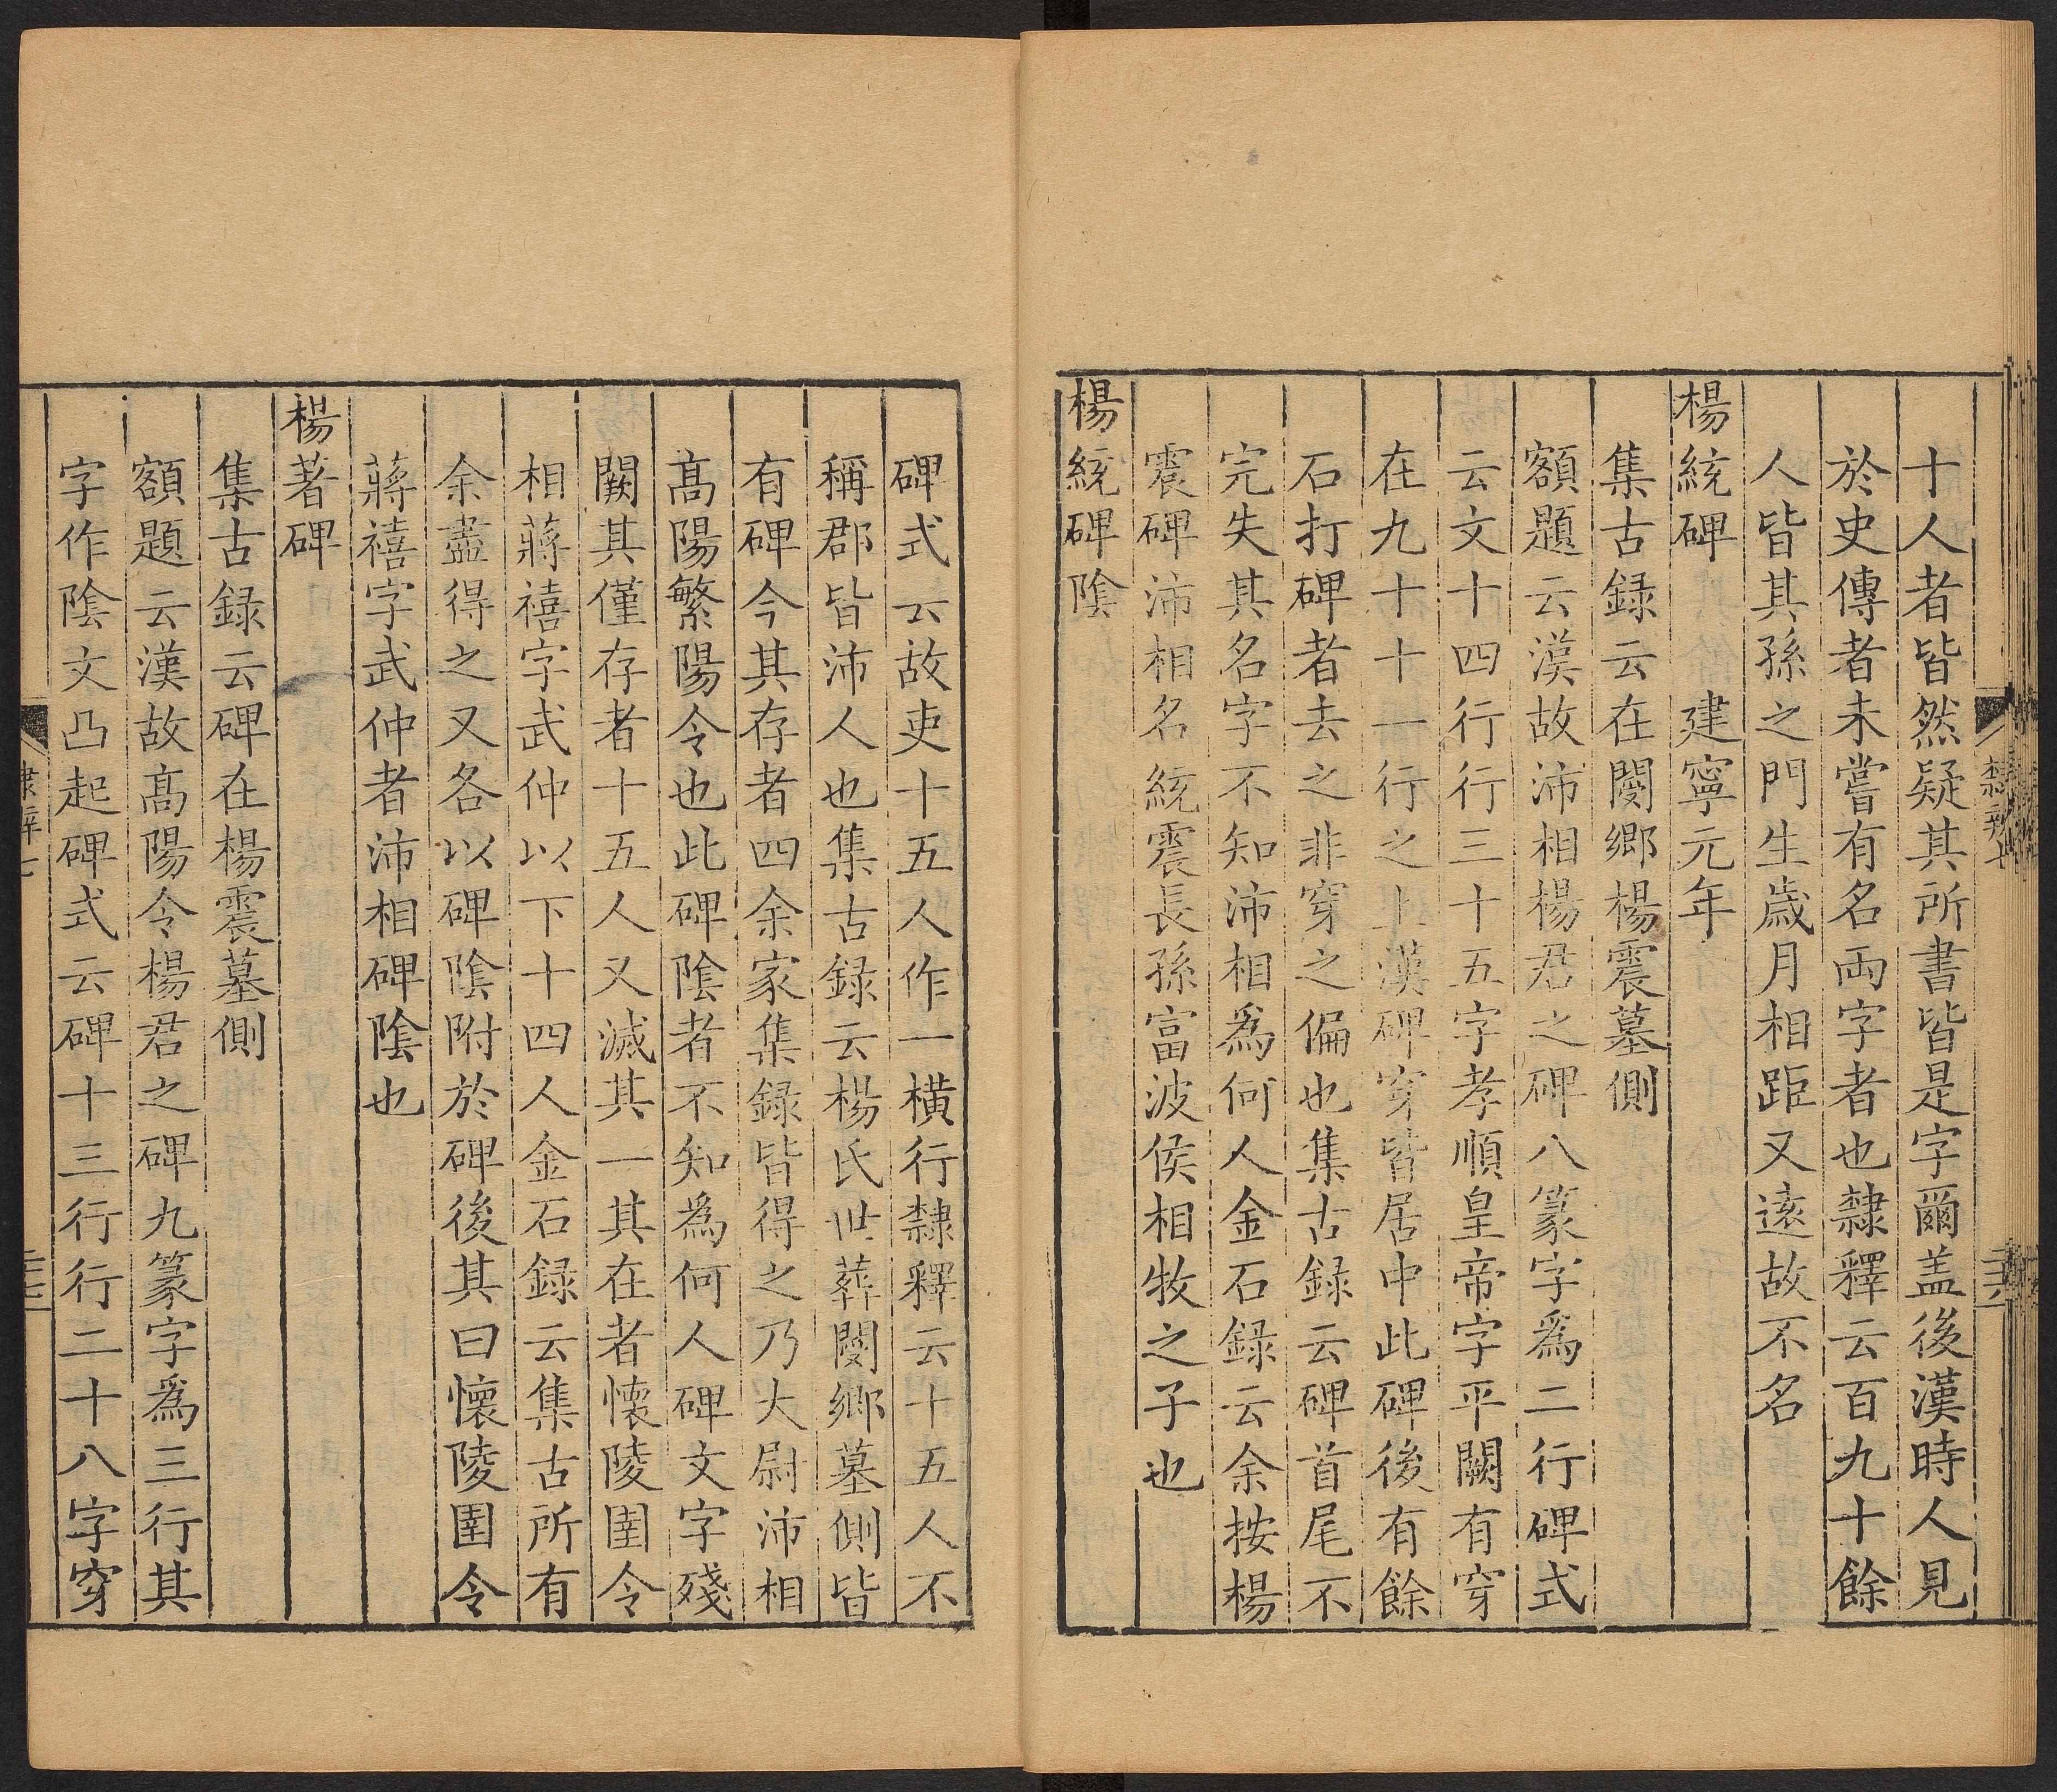 十人者皆然疑其所書皆是字爾盖後漢時人見
於史傳者未嘗有名両字者也隸釋云百九十餘
人皆其孫之門生歲月相距又遠故不名
楊統碑　建寧元年
集古録云在閿鄉楊震墓側
額題云漢故沛相楊君之碑八篆字爲二行碑式
云文十四行行三十五字孝順皇帝字平闕有穿
在九十十一行之上漢碑穿皆居中此碑後有餘
石打碑者去之非穿之偏也集古録云碑首尾不
完失其名字不知沛相爲何人金石録云余按楊
震碑沛相名統震長孫富波侯相牧之子也
楊統碑陰
碑式云故吏十五人作一橫行隸釋云十五人不
稱郡皆沛人也集古録云楊氏世葬閿鄉墓側皆
有碑今其存者四余家集録皆得之乃大尉沛相
髙陽繁陽令也此碑陰者不知爲何人碑文字殘
闕其僅存者十五人又滅其一其在者懷陵圉令
相蔣禧字武仲以下十四人金石録云集古所有
余盡得之又各以碑陰附於碑後其曰懷陵圉令
蔣禧字武仲者沛相碑陰也
楊著碑
集古録云碑在楊震墓側
額題云漢故髙陽令楊君之碑九篆字爲三行其
字作陰文凸起碑式云碑十三行行二十八字穿